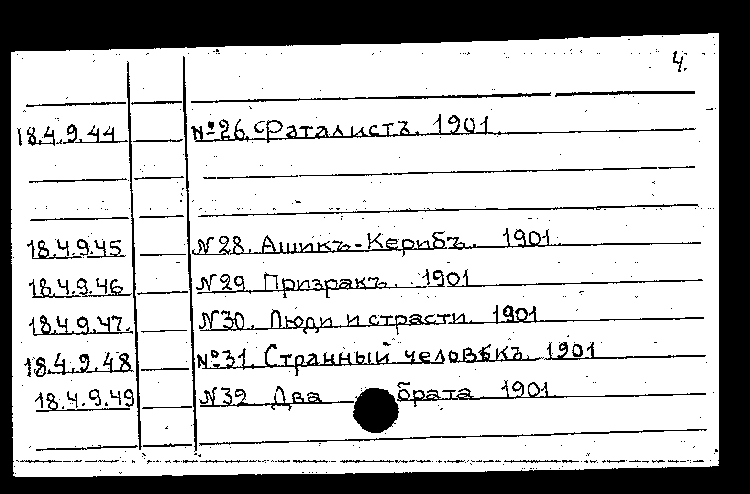 4.
18.4.9.44 №26. Фаталистъ. 1901.
18.4.9.45 N28. Ашикъ-Керибъ. 1901.
18.4.9.46 N29. Призракъ. 1901
18.4.9.47. N30. Люди и страсти. 1901
18.4.9.48 №31. Странный человѣкъ. 1901
18.4.9.49 N32 Два брата 1901.